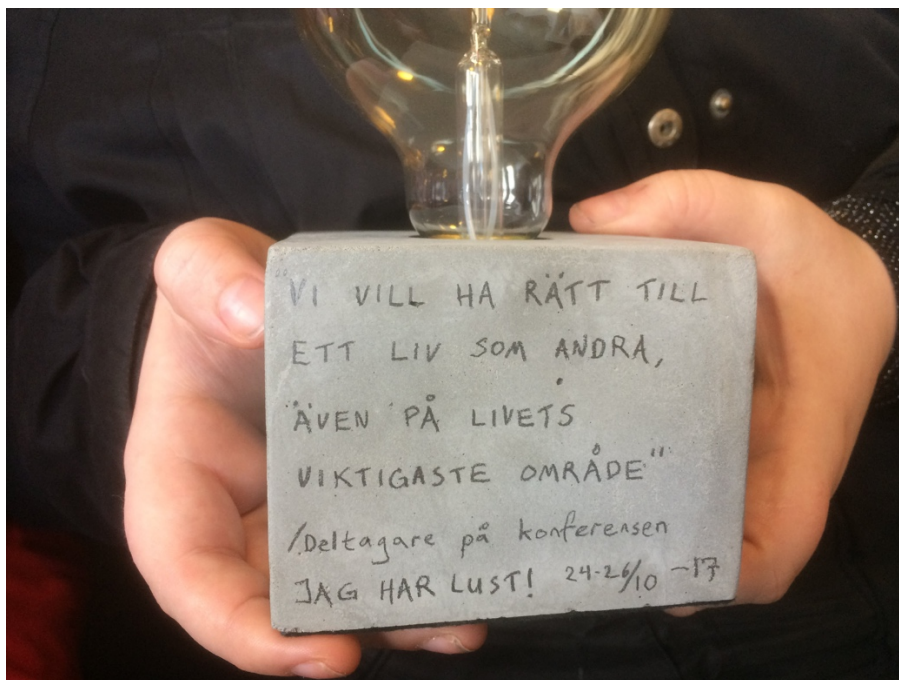 "VI VILL HA RÄTT TILL
ETT LIV SOM ANDRA,
ÄVEN PÅ LIVETS
VIKTIGASTE OMRÅDE"
/Deltagare på konferensen
JAG HAR LUST! 24-26/10 -17